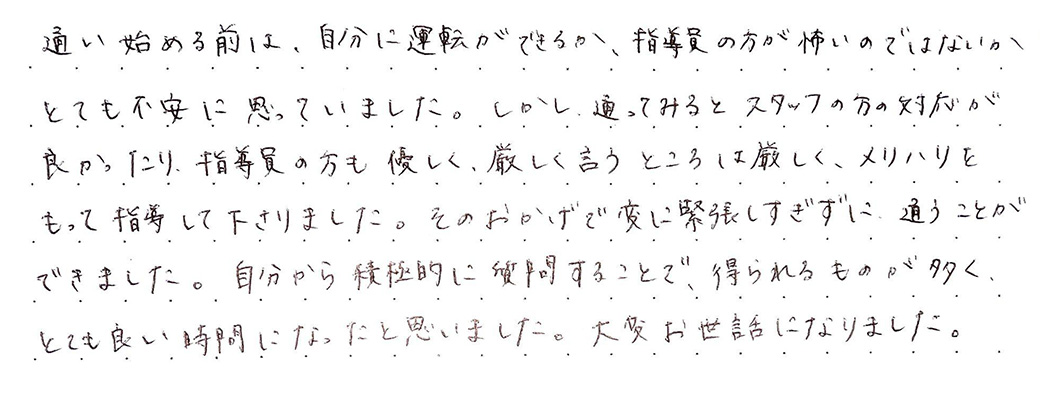 通い始める前は、自分に運転ができるか、指導員の方が怖いのではないか
とても不安に思っていました。しかし、通ってみるとスタッフの方の対応が
良かったり、指導員の方も優しく、厳しく言うところは厳しく、メリハリを
もって指導して下さりました。そのおかげで変に緊張しすぎずに、通うことが
できました。自分から積極的に質問することで、得られるものが多く、
とても良い時間になったと思いました。大変お世話になりました。